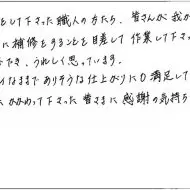 として下さった職人の方たち、皆さんが我が
に補修をすることを目差して作業して下さ
でき、うれしく思っています。
なままでありそうな仕上がりに満足して
かかわって下さった皆さまに感謝の気持ち